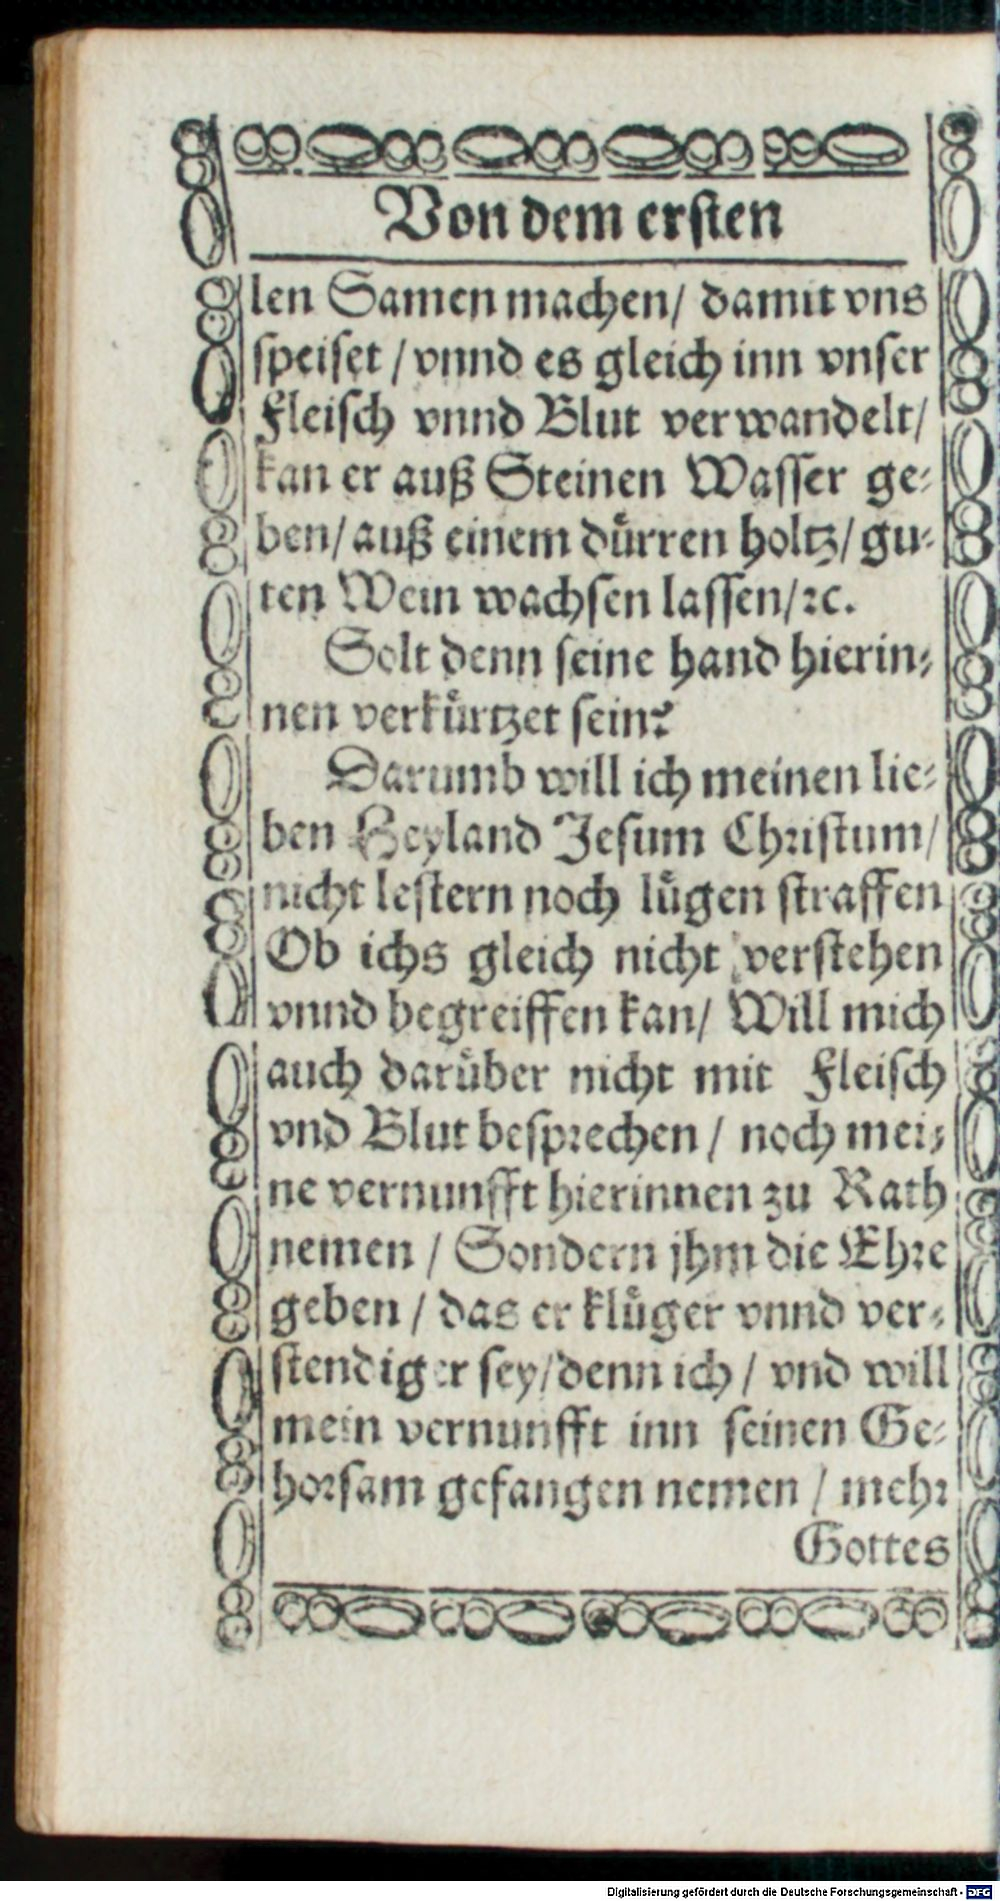 Von dem ersten
len Samen machen/ damit vns
speiset / vnnd es gleich inn vnser
Fleisch vnnd Blut verwandelt/
kan er auß Steinen Wasser ge-
ben/ auß einem duͤrren holtz/ gu-
ten Wein wachsen lassen/ ꝛc.
Solt denn seine hand hierin-
nen verkuͤrtzet sein?
Darumb will ich meinen lie-
ben Heyland Jesum Christum/
nicht lestern noch luͤgen straffen
Ob ichs gleich nicht verstehen
vnnd begreiffen kan/ Will mich
auch daruͤber nicht mit Fleisch
vnd Blut besprechen / noch mei-
ne vernunfft hierinnen zu Rath
nemen / Sondern jhm die Ehre
geben / das er kluͤger vnnd ver-
stendiger sey/ denn ich / vnd will
mein vernunfft inn seinen Ge-
horsam gefangen nemen / mehr
Gottes
Digitalisierung gefördert durch die Deutsche Forschungsgemeinschaft - DFG